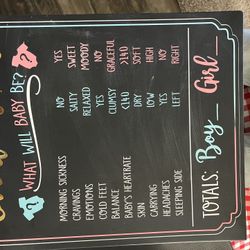 WHAT WILL BABY BE?
MORNING SICKNESS NO YES
CRAVINGS SALTY SWEET
EMOTIONS RELAXED MOODY
COLD FEET YES NO
BALANCE CLUMSY GRACEFUL
BABY'S HEARTRATE <140 >140
SKIN DRY SOFT
CARRYING LOW HIGH
HEADACHES YES NO
SLEEPING SIDE LEFT RIGHT
TOTALS: Boy__ Girl__